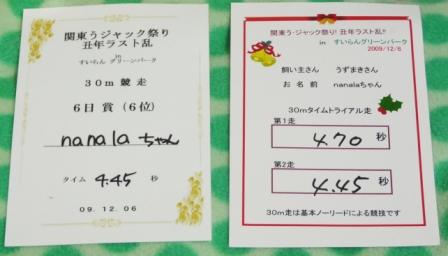 関東うジャック祭り
丑年ラスト乱
in
すいらん グリーンパーク
30m 競 走
6日 賞 (6位)
nanala ちゃん
タイム 4.45 秒
09. 12. 06
関東う・ジャック祭り! 丑年ラスト乱!!
in すいらんグリーンパーク
2009/12/6
飼い主さん うずまきさん
お 名 前 nanalaちゃん
30mタイムトライアル走
第1走
4.70 秒
第2走
4.45 秒
30m走は基本ノーリードによる競技です